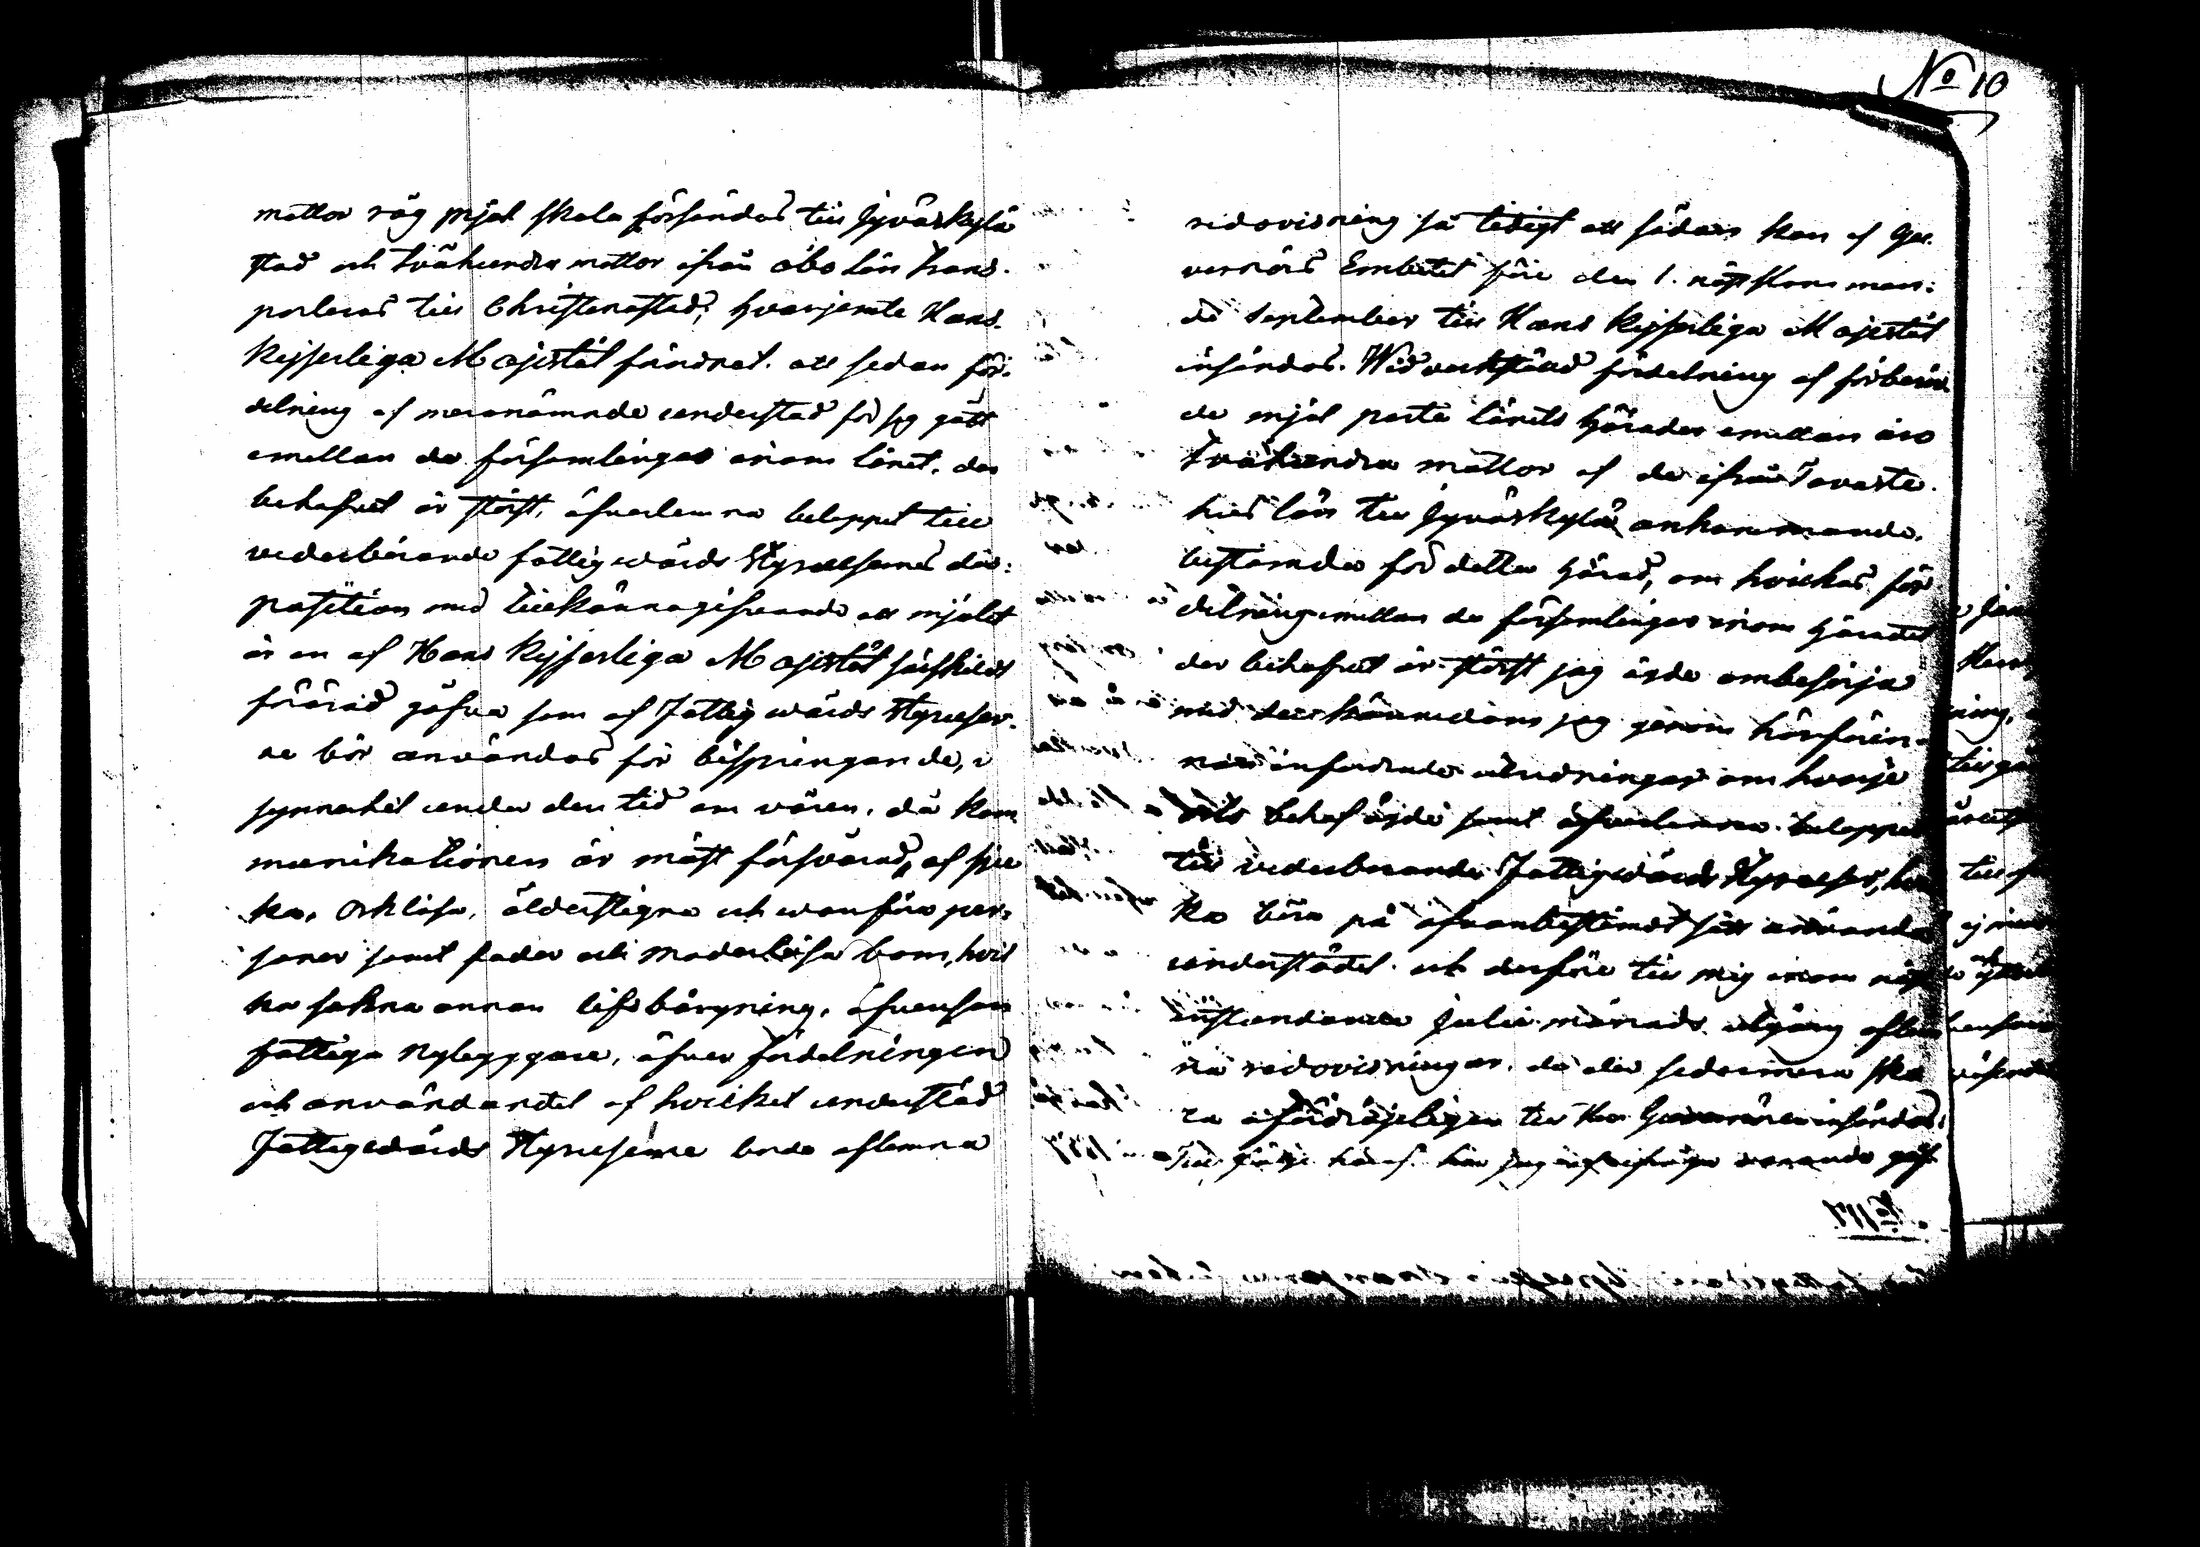 No 10
mattor råg mjöl skola försändas till Jyväskylä
stad och tvåhundra mattor ifrån Åbo län trans-
porteras till Christinestad; hvarjemte Hans
Kejserliga Majestät förordnat, att sedan för-
delning af meranämnde understöd för sig gått
emellan de församlingar inom länet, der
behofvet är störst, öfverlemna beloppet till
vederbörande fattigvårds Styrelsernes dis-
position med tillkännagifvande att mjölet
är en af Hans Kejserliga Majestät särskildt
förärad gåfva som af Fattigvårds Styrelser-
ne bör användas för bispringande, i
synnerhet under den tid om våren, då kom
munikationen är mäst försvårad, af sju
ka, orklösa, ålderstigna och vanföra per-
soner samt fader och moderlösa barn, hvil
ka sakna annan lifsbärgning, äfvensom
fattiga nybyggare, öfver fördelningen
och användandet af hvilket understöd
Fattigvårds Styrelserne borde aflemna
redovisning så tidigt att sådan kan af Gu-
vernörs Embetet före den 1. nästkomman-
de September till Hans Kejserliga Majestät
insändas. Wid verkstäld fördelning af förberör
de mjöl parti länets Härader emellan äro
tvåhundra mattor af de ifrån Tavaste-
hus län till Jyväskylä ankommande,
bestämda för detta Härad, om hvilkas för
delning emellan de församlingar inom Häradet
der behofvet är störst jag ägde ombesörja
med den kännedom jag genom
infördrade utredningar om hvarje
orts behof ägde samt öfverlemna beloppet
till vederbörande Fattigvårds Styrelser, hvil
ka böra på ofvanbestämdt sätt använda
understödet och derföre till mig inom näst
instundande Julii månads utgång aflem
na redovisningar, då de sedermera sko
la ofördröjeligen till Herr Guvernören insändas.
Till följe häraf har jag